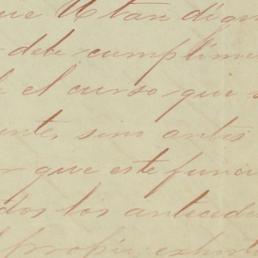 que U tan dign
debe cumplimi
el curso que s
ente, sino antes
r que este funci
dos los anteced
propia exhort